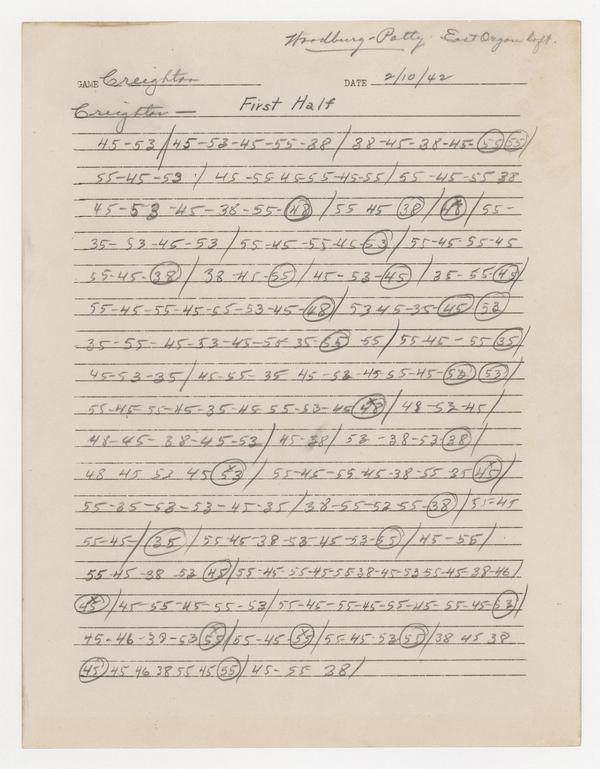 Woodbury - Patty. East Organ loft.
GAME Creighton DATE 2/10/42
Creighton — First Half
45-53/45-53-45-55-38/38-45-38-45-55 55/
55-45-53/45-55-45-55-45-55/55-45-55 38
45-53-45-38-55-48/55 45 38/48/55-
35-53-45-53/55-45-55-45-53/55-45-55-45
55-45-38/38-45-55/45-53-45/35-55-45/
55-45-55-45-55-53-45-48/53 45-35-45-53
35-55-45-53-45-55-35-55-55/55 45-55 35/
45-53-35/45-55-35 45-53-45-55-45-53 53/
55-45-55-45-35-45-55-53-45 48/48-53-45/
48-45-38-45-53/45-38/53-38-53-38/
48 45 53 45 53/55-45-55-45-38-55-35 45/
55-35-53-53-45-35/38-55-53-55-38/55-45
55-45-/35/55 45-38-53-45-53-55/45-55/
55-45-38-53 45/55-45-55-45-55 38-45-53 55-45-38-46/
45/45-55-45-55-53/55-45-55-45-55-45-55-45-53/
45-46-38-53 55/55-45-55/55-45-53-55/38 45 38
45 45 46 38 55 45 55/45-55 38/